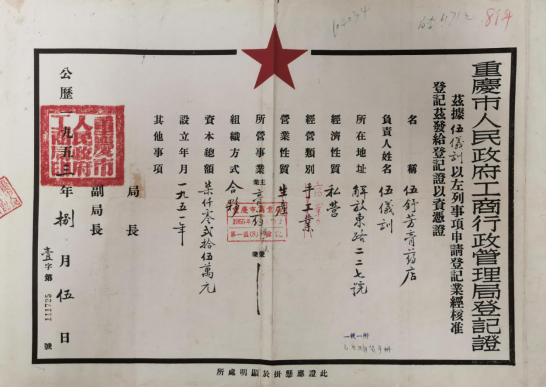 重慶市人民政府工商行政管理局登記證
茲據伍儀訓以左列事項申請登記業經核准
登記茲發給登記證以資憑證
名稱 伍舒芳膏葯店
負責人姓名 伍儀訓
所在地址 解放東路二二七號
經濟性質 私營
經營類別 手工業
營業性質 生產
所營事業 主
組織方式 合夥
資本總額 柒仟零弍拾伍萬元
設立年月 一九五一年
其他事項
局長
副局長
公歷一九五三年捌月伍日
壹字第 111725 號
重慶市人民政府工商局印
此證應懸掛於顯明處所